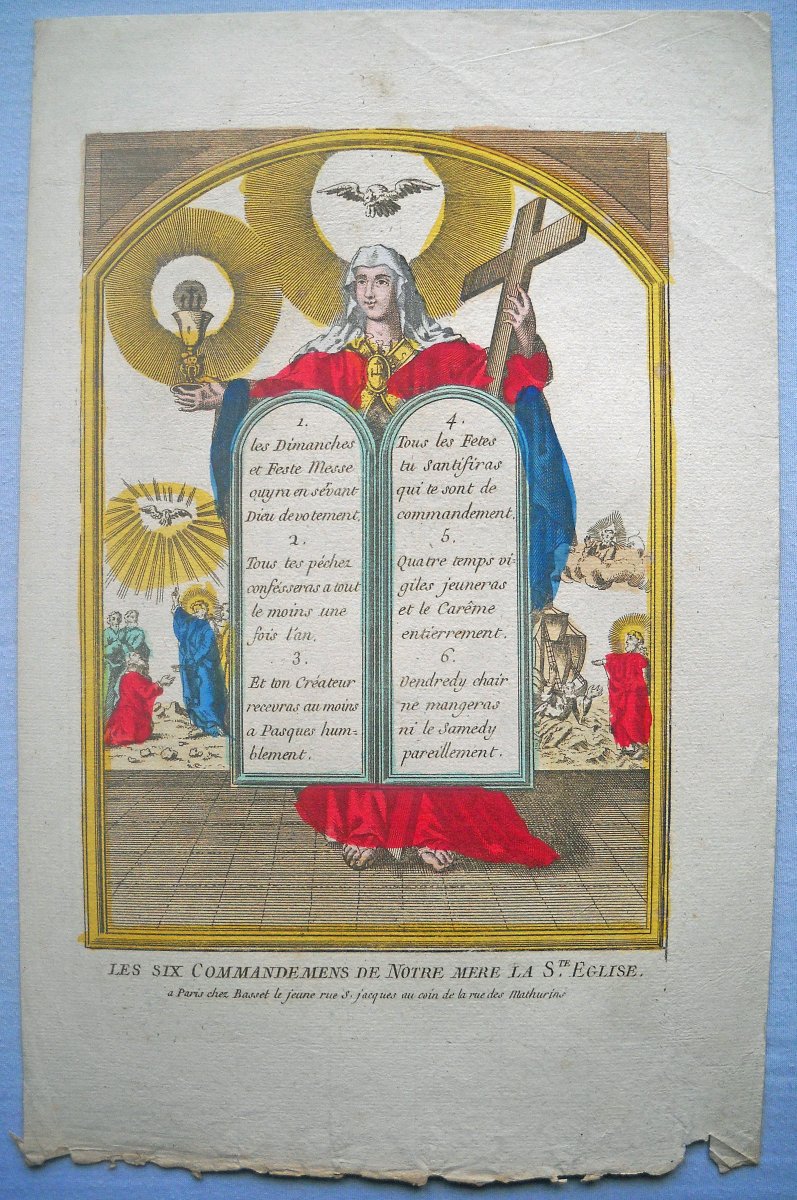 1.
les Dimanches
et Feste Messe
ouyra en sévant
Dieu devotement.
2.
Tous tes péchez
confésseras a tout
le moins une
fois l'an.
3.
Et ton Créateur
recevras au moins
a Pasques hum=
blement.
4.
Tous les Fetes
tu santifiras
qui te sont de
commandement.
5.
Quatre temps vi-
giles jeuneras
et le Carême
entierrement.
6.
Vendredy chair
ne mangeras
ni le Samedy
pareillement.
LES SIX COMMANDEMENS DE NOTRE MERE LA S.TE EGLISE.
a Paris chez Basset le jeune rue S. jacques au coin de la rue des Mathurins